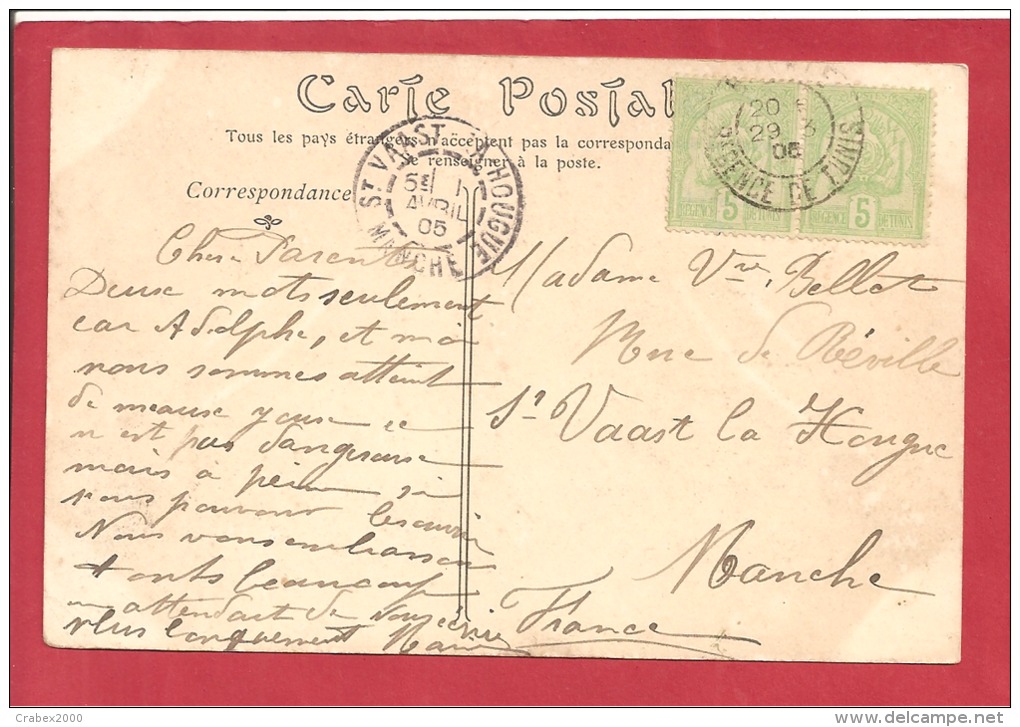 Carte Postale
Tous les pays étrangers n'acceptent pas la correspondance
se renseigner à la poste.
Correspondance
REGENCE DE TUNIS
20
29
05
REGENCE 5 DE TUNIS
REGENCE 5 DE TUNIS
ST VAAST LA HOUGUE
5E 1
AVRIL
05
MANCHE
Chers Parents
Deux mots seulement
car Adelphe, et moi
nous sommes atteint
de meause yeuse ce
n est pas dangereuse
mais à peine si
nous pouvons
Nous vous embrassons
tonts beaucoup
en attendant de vous écrire
plus longuement Marie
Madame Vve Bellet
Rue de Réville
St Vaast la Hougue
Manche
France
Crabex2000
delcampe.net